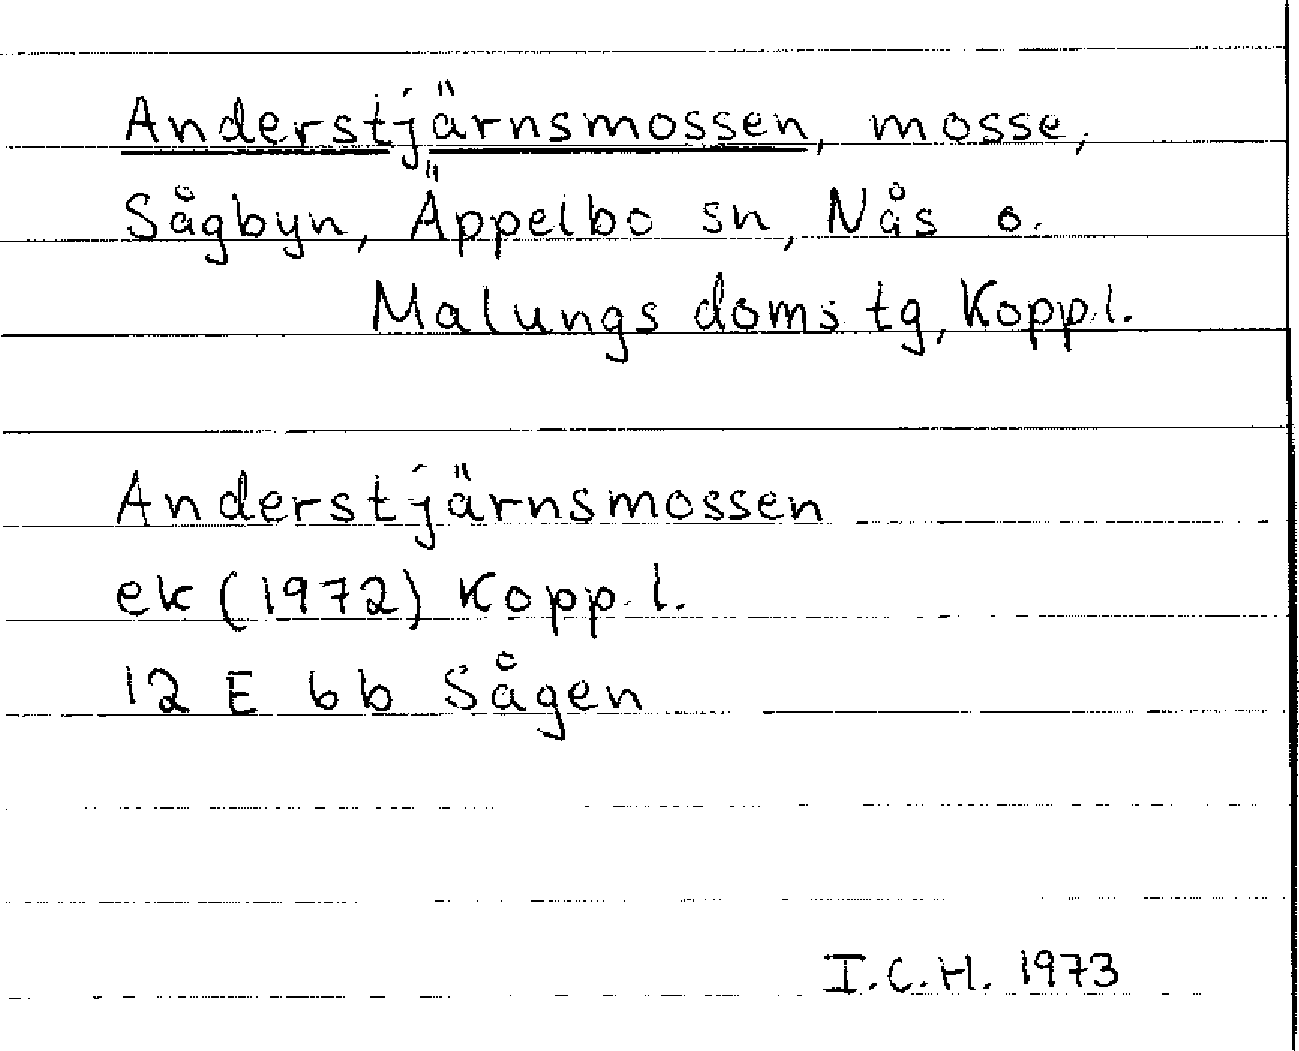 Anderstjärnsmossen, mosse,
Sågbyn, Äppelbo sn, Nås o.
Malungs doms tg, Koppl.
Anderstjärnsmossen
ek (1972) Kopp. l.
12 E 6b Sågen
I.C.H. 1973